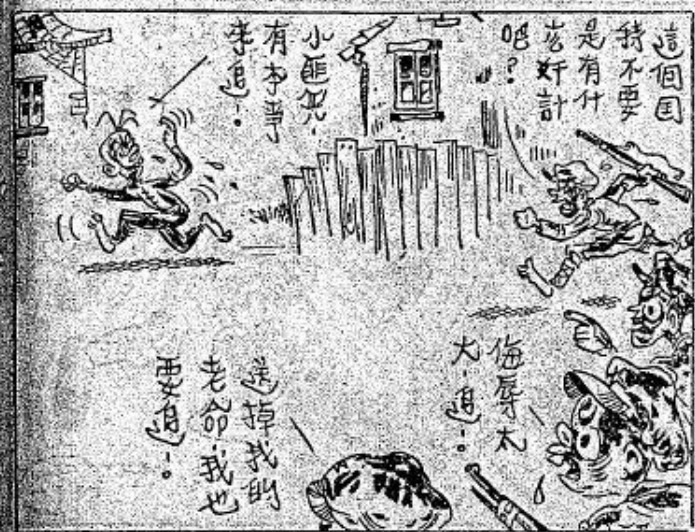 這個国
特不要
是有什
么奸計
吧？
小匪兒，
有本事
來追！。
侮辱太
大！追！。
送掉我的
老命，我也
要追！。